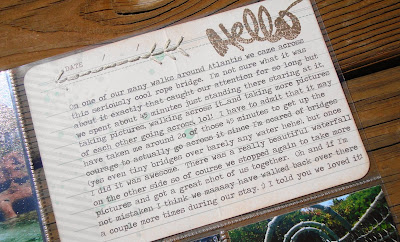 Hello
DATE
On one of our many walks around Atlantis we came across
this seriously cool rope bridge. I'm not sure what it was
about it exactly that caught our attention for so long but
we spent about 45 minutes just standing there staring at it,
taking pictures, walking across it and taking more pictures
of each other going across lol! I have to admit that it may
have taken me around 20 of those 45 minutes to get up the
courage to actually go across it since I'm scared of bridges
(yes even tiny bridges over barely any water hehe) but once
I did it was awesome. There was a really beautiful waterfall
on the other side so of course we stopped again to take more
pictures and got a great shot of us together. Oh and if I'm
not mistaken I think we maaaay have walked back over there
a couple more times during our stay ;) I told you we loved it!